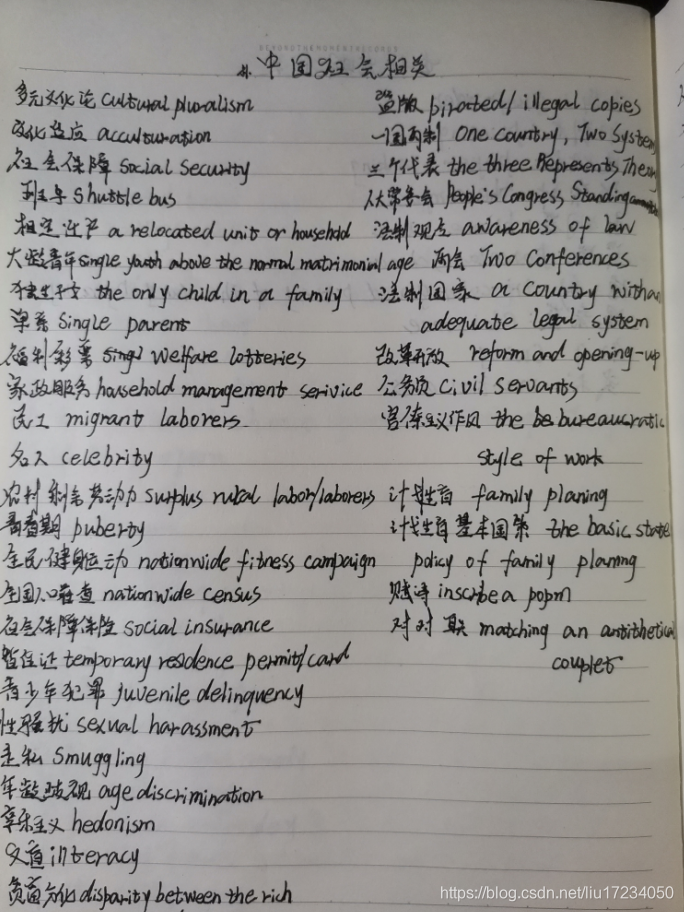 4. 中国社会相关
多元文化论 cultural pluralism
文化适应 acculturation
社会保障 social security
班车 shuttle bus
拆迁户 a relocated unit or household
大龄青年 single youth above the normal matrimonial age
独生子女 the only child in a family
单亲 single parent
福利彩票 singl welfare lotteries
家政服务 household management serivice
民工 migrant laborers
名人 celebrity
农村剩余劳动力 surplus rural labor/laborers
青春期 puberty
全民健身运动 nationwide fitness campaign
全国人口普查 nationwide census
社会保障保险 social insurance
暂住证 temporary residence permit/card
青少年犯罪 juvenile delinquency
性骚扰 sexual harassment
走私 smuggling
年龄歧视 age discrimination
享乐主义 hedonism
文盲 illiteracy
贫富分化 disparity between the rich
盗版 pirated/illegal copies
一国两制 One country, Two System
三个代表 the three Represents Theory
人大常委会 People's Congress Standing
法制观念 awareness of law
两会 Two Conferences
法制国家 a country with an
adequate legal system
改革开放 reform and opening-up
公务员 civil servants
官僚主义作风 the be bureaucratic
style of work
计划生育 family planing
计划生育基本国策 the basic state
policy of family planing
赋诗 inscribe a popm
对对联 matching an antithetical
couplet
https://blog.csdn.net/liu17234050